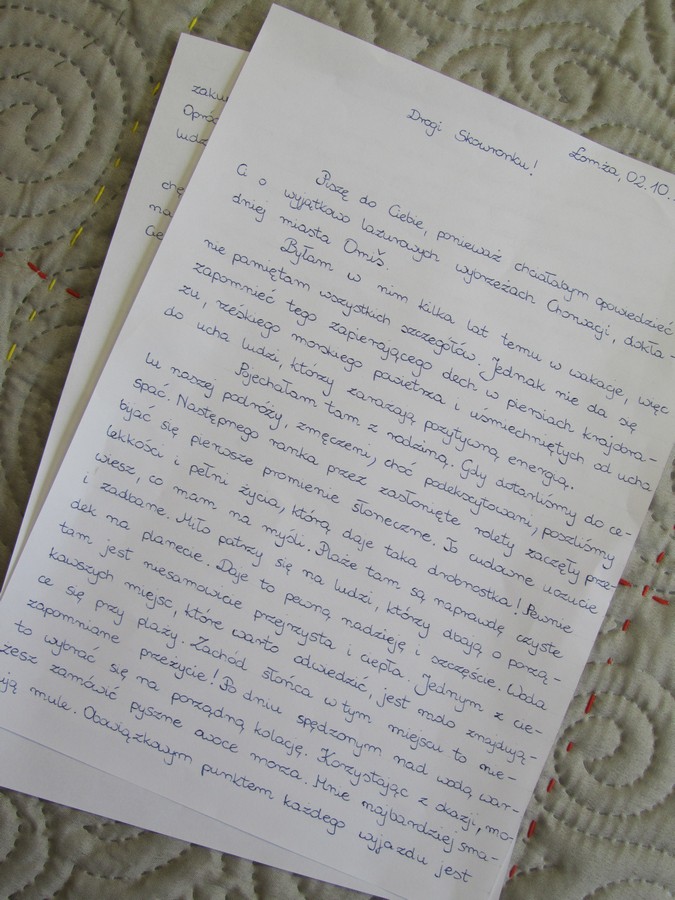 zaku
Opró
ludz
chę
ma
Cie
Łomża, 02.10.
Drogi Skowronku!
Piszę do Ciebie, ponieważ chciałabym opowiedzieć
Ci o wyjątkowo lazurowych wybrzeżach Chorwacji, dokła-
dniej miasta Omiš.
Byłam w nim kilka lat temu w wakacje, więc
nie pamiętam wszystkich szczegółów. Jednak nie da się
zapomnieć tego zapierającego dech w piersiach krajobra-
zu, rześkiego morskiego powietrza i uśmiechniętych od ucha
do ucha ludzi, którzy zarażają pozytywną energią.
Pojechałam tam z rodziną. Gdy dotarliśmy do ce-
lu naszej podróży, zmęczeni, choć podekscytowani, poszliśmy
spać. Następnego ranka przez zasłonięte rolety zaczęły prze-
bijać się pierwsze promienie słoneczne. To cudowne uczucie
lekkości i pełni życia, którą daje taka drobnostka! Pewnie
wiesz, co mam na myśli. Plaże tam są naprawdę czyste
i zadbane. Miło patrzy się na ludzi, którzy dbają o porzą-
dek na planecie. Daje to pewną nadzieję i szczęście. Woda
tam jest niesamowicie przejrzysta i ciepła. Jednym z cie-
kawszych miejsc, które warto odwiedzić, jest molo znajdują-
ce się przy plaży. Zachód słońca w tym miejscu to nie-
zapomniane przeżycie! Po dniu spędzonym nad wodą, war-
to wybrać się na porządną kolację. Korzystając z okazji, mo-
żesz zamówić pyszne owoce morza. Mnie najbardziej sma-
ują mule. Obowiązkowym punktem każdego wyjazdu jest